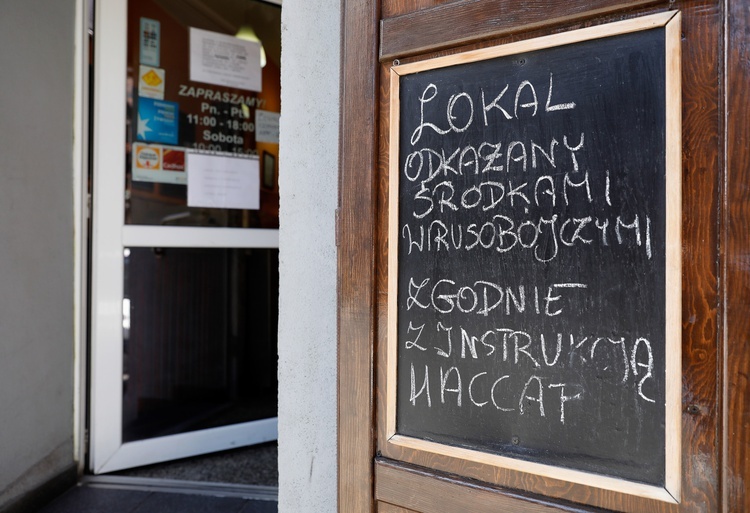 ZAPRASZAMY
Pn. - Pt.
11:00 - 18:00
Sobota
LOKAL
ODKAŻANY
ŚRODKAMI
WRUSOBÓJCZYMI
ZGODNIE
Z INSTRUKCJĄ
HACCAP